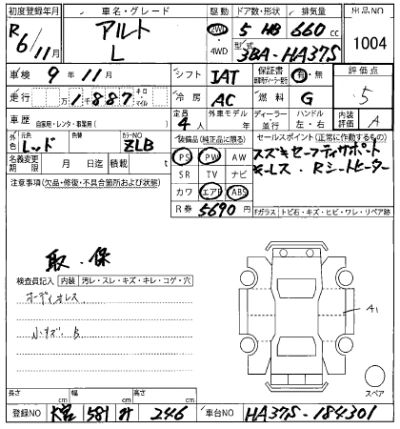 初度登録年月 車名・グレード 駆動 ドア数・形状 排気量 出品NO
R6/11月 アルト L 2WD 4WD 5 HB 660cc 1004
型式 3BA-HA37S
車検 9年11月 シフト IAT 保証書 有・無 評価点 5
走行 1,887 キロ マイル 冷房 AC 燃料 G
車歴 自家用・レンタ・事業用( ) 定員 4人 外車モデル 年 ディーラー 並行 ハンドル 左・右 内装評価 A
外色 元色 レッド 色替 カラーNO ZLB
装備品(純正品に限る) セールスポイント(正常に作動するもの)
名義変更期限 月 日迄 積載 t
PS PW AW
SR TV ナビ
カワ エアB ABS
R券 5690円
スズキセーフティサポート
キーレス・Rシートヒーター
注意事項(欠品・修復・不具合箇所および状態)
取・保
Fガラス トビ石・キズ・ヒビ・ワレ・リペア跡
検査員記入 内装 汚レ・スレ・キズ・キレ・コゲ・穴
オーディオレス
小キズ B
A1
スペア
長さ cm 幅 cm 高さ cm
登録NO 大宮 581 246 車台NO HA37S-184301